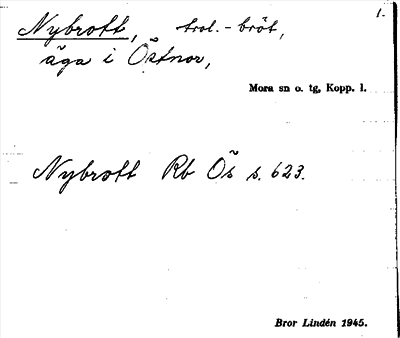 1.
Nybrott, trol. - bröt,
äga i Östnor,
Mora sn o. tg, Kopp. l.
Nybrott Rb Ös s. 623.
Bror Lindén 1945.